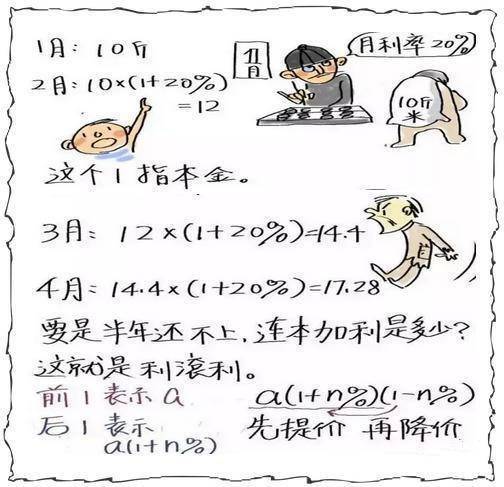 1月: 10斤
月利率20%
2月: 10×(1+20%)
=12
10斤
米
这个1指本金。
3月: 12×(1+20%)=14.4
4月: 14.4×(1+20%)=17.28
要是半年还不上,连本加利是多少?
这就是利滚利。
前1表示a
a(1+n%)(1-n%)
后1表示
a(1+n%)
先提价 再降价